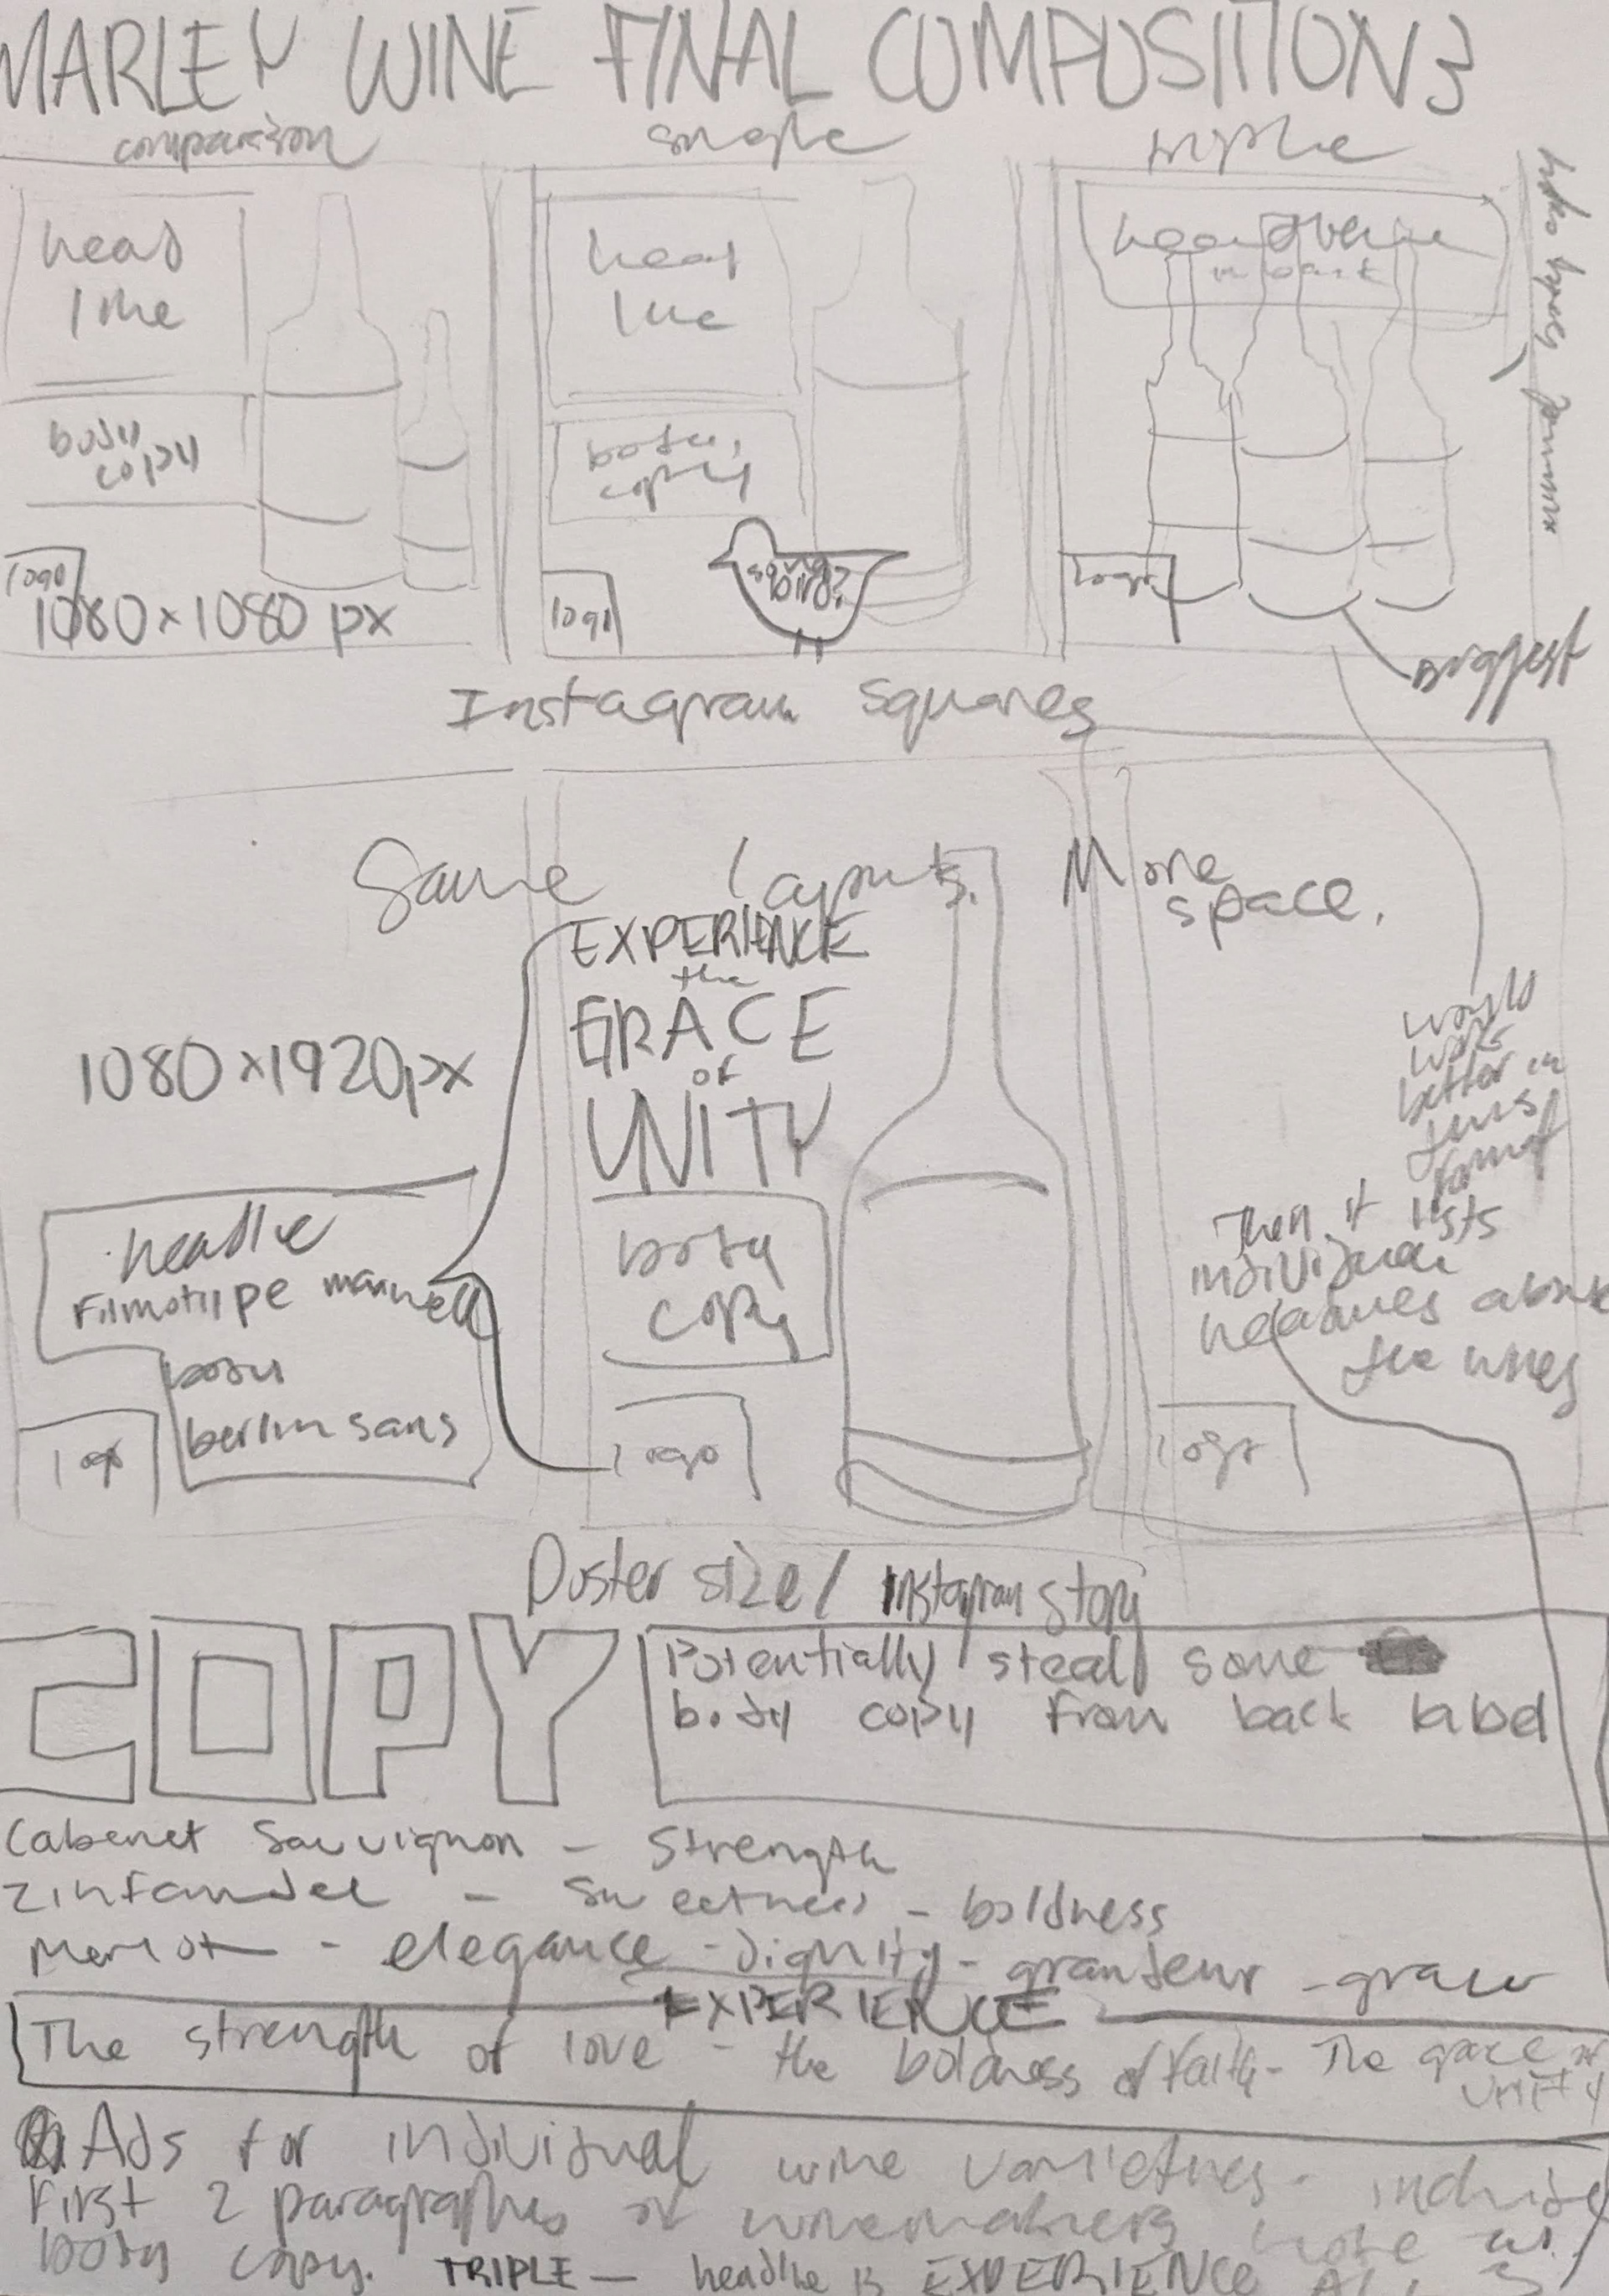 MARLEY WINE FINAL COMPOSITIONS
comparison single triple
head
line
body
copy
logo
1080 x 1080 px
head
line
body
copy
logo
squird?
headline
in back
logo
biggest
Instagram Squares
Same layouts. More
space.
EXPERIENCE
the
GRACE
of
UNITY
body
copy
logo
1080 x 1920px
headline
Filmotype maxwell
body
berlin sans
logo
would
work
better in
this
format
Then it lists
individual
headlines above
the wines
logo
Poster size / Instagram story
COPY
Potentially steal some
body copy from back label
Cabenet Sauvignon - Strength
Zinfandel - Sweetness - boldness
Merlot - elegance - dignity - grandeur - grace
EXPERIENCE
The strength of love - the boldness of faith - The grace of
UNITY
Ads for individual wine varieties. include
First 2 paragraphs of winemakers note as
body copy. TRIPLE - headline is EXPERIENCE ALL 3